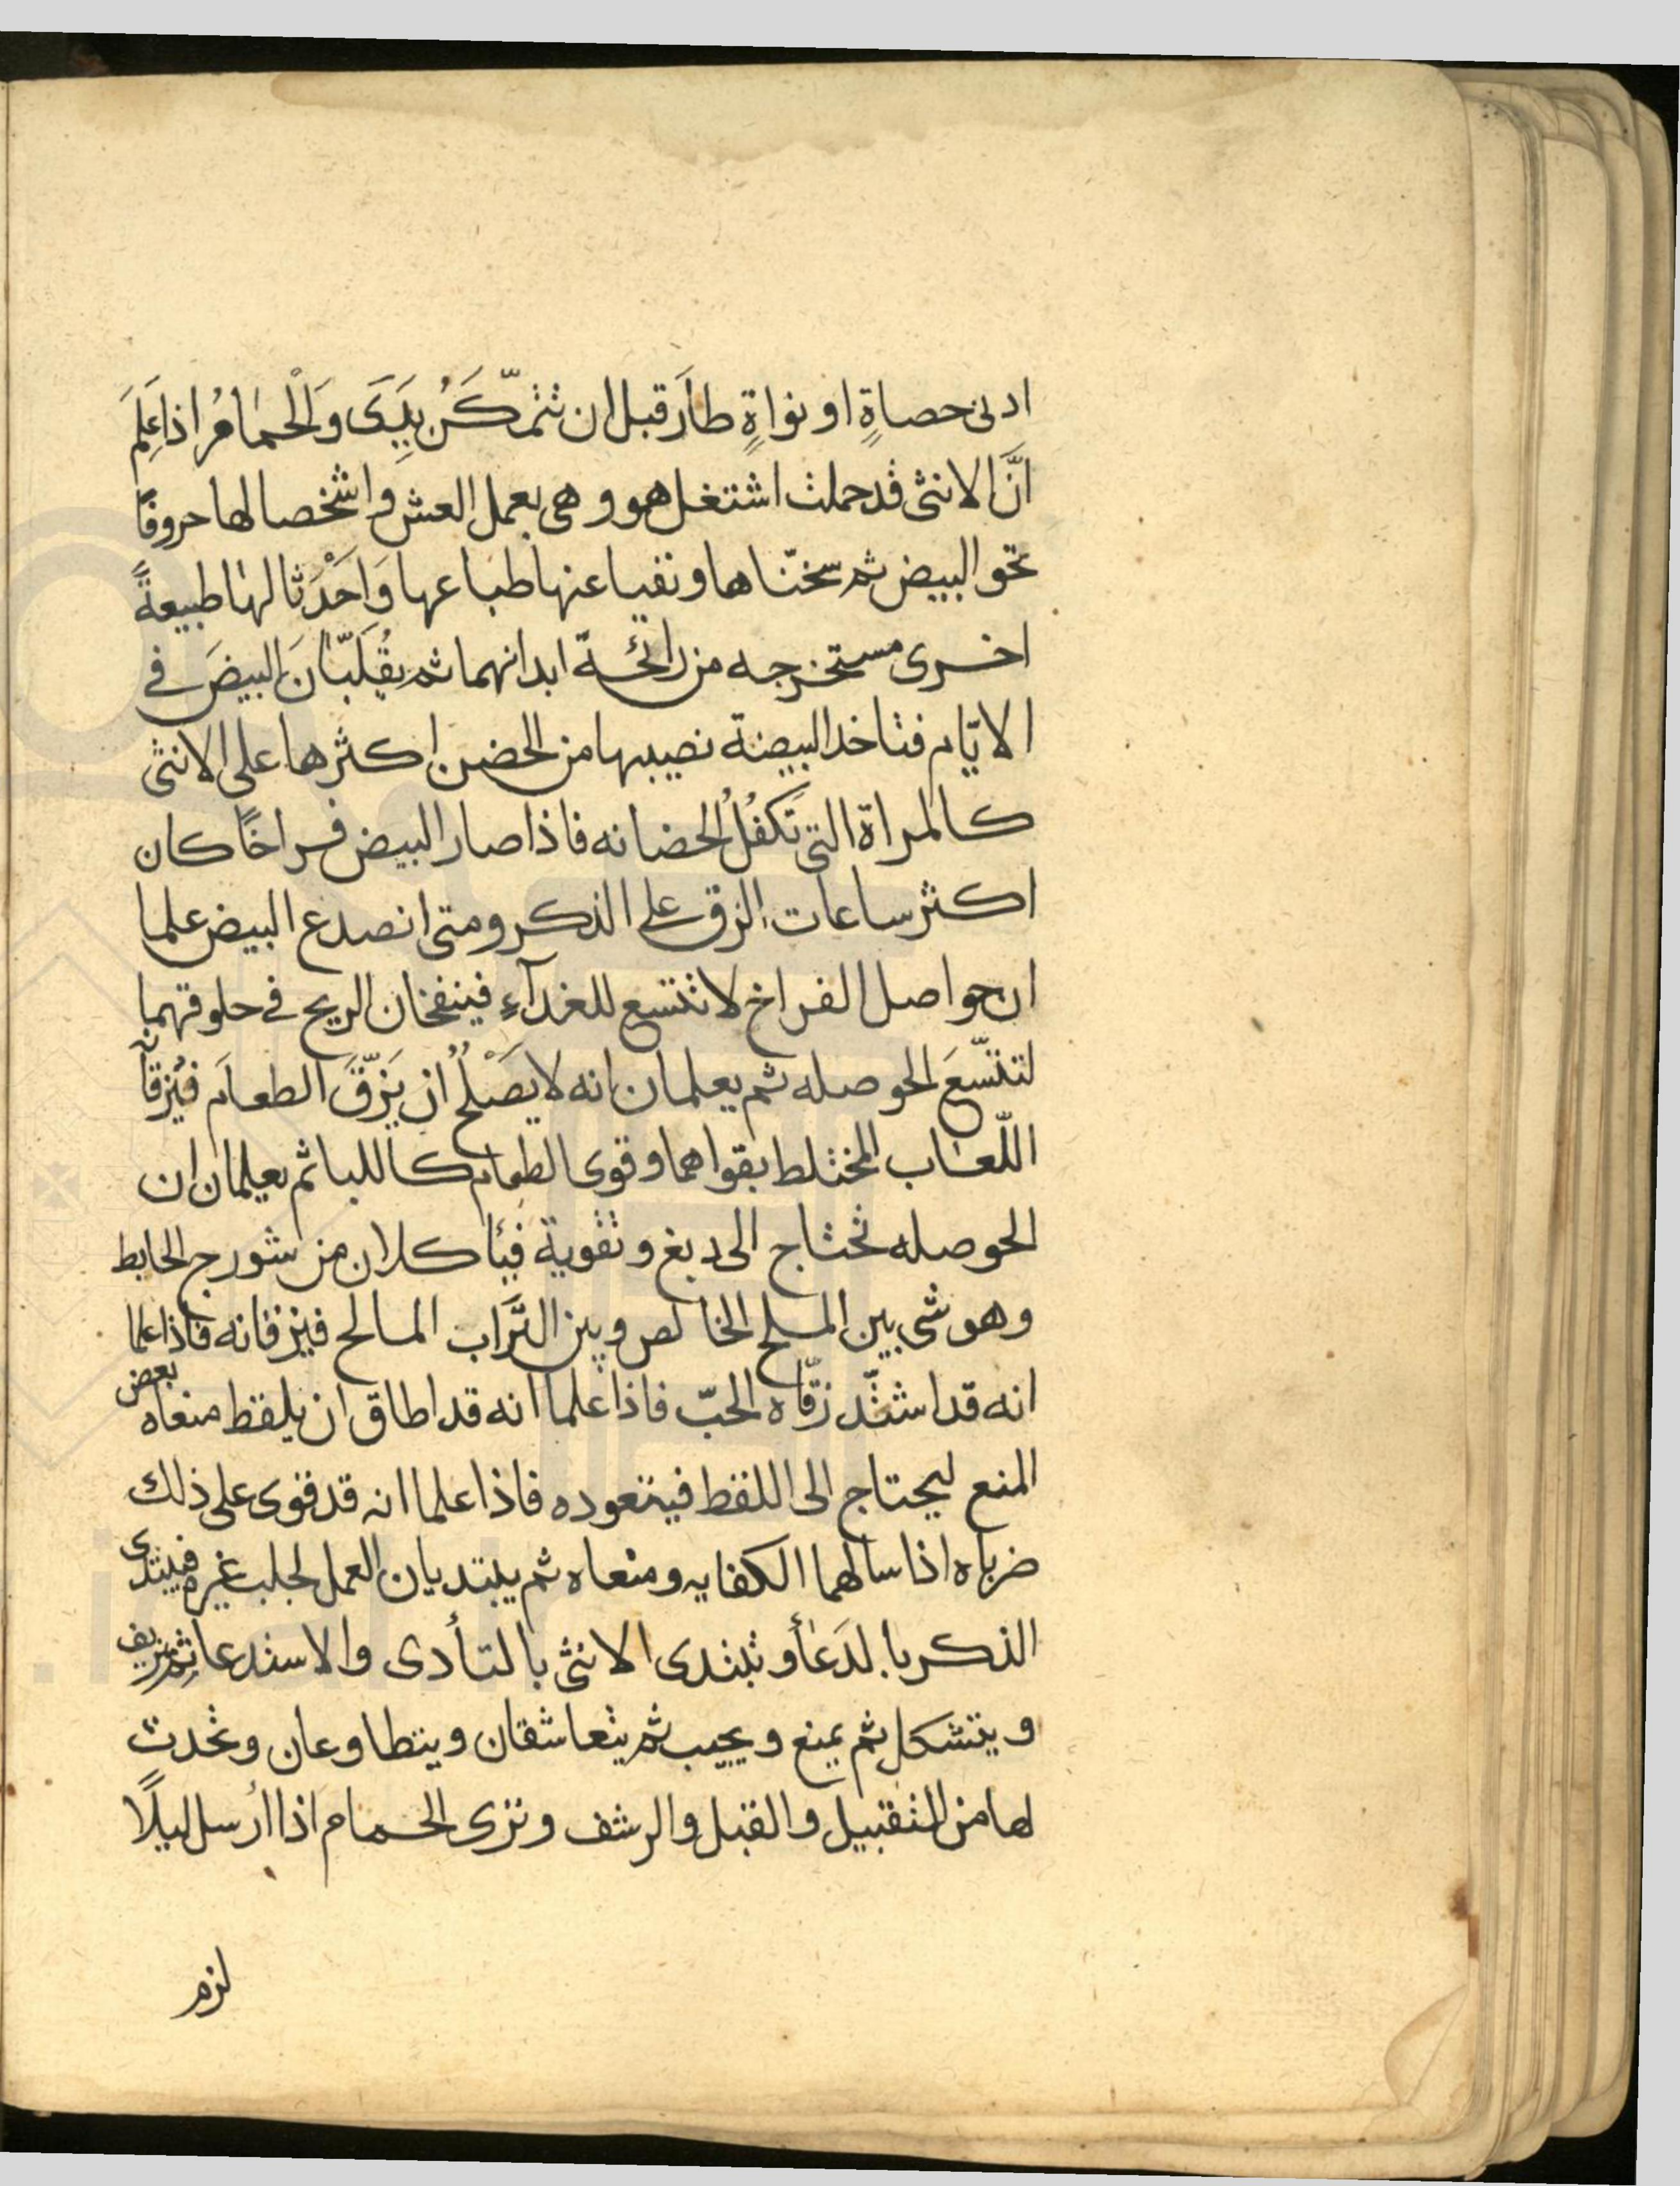 ادنى حصاةٍ او نواةٍ طارَ قبل ان تتمّكَنُ يَدِىَ وَالْحمَامُ اذا عَلِمَ
انَّ الانثى قد حملت اشتغل هو و هى بعمل العش و اشخصا لها حروفًا
تحو البيض ثم سخنّاها و نفيا عنها طباعها وَاَحْدَثا لها طبيعةً
اخرى مستخرجه من رائحة ابدانهما ثم يقلَبّانَ البيضَ فى
الايّام فتاخذ البيضة نصيبها من الحضن اكثرها على الانثى
كالمراة التى تَكفُلُ الحضانه فاذا صار البيض فراخًا كان
اكثر ساعات الزق على الذكر و متى انصدع البيض علما
ان حواصل الفراخ لا تتسع للغدآءِ فينفخان الريح فى حلوقهما
لتتسّعَ الحوصله ثم يعلمان انه لا يَصْلُحُ ان يَزقّ الطعام فيُزقانِ
اللّعاب المختلط بقواهما و قوى الطعام كاللبا ثم يعلمان ان
الحوصله تحتاج الى دبغ و تقوية فيأكلان من شورج الحايط
وهو شى بين الملح الخالص و بين التَراب المالح فيزقانه فاذا علما
انه قد اشتدّ زقّاه الحبّ فاذا علما انه قد اطاق ان يلقط منعاه بعض
المنع ليحتاج الى اللقط فيتعوده فاذا علما انه قد قوى على ذلك
ضرباه اذا سالهما الكفايه و منعاه ثم يبتديان العمل لجلب غيره فيبتدى
الذكر بالدَعأ و تبتدى الانثى بالتأدى والاستدعا ثم يزيف
و يتشكل ثم يمنع و يجيب ثم يتعاشقان و يتطاوعان و تحدث
لها من التقبيل و القبل و الرشف و ترى الحمام اذا ارسل ليلًا
لزم